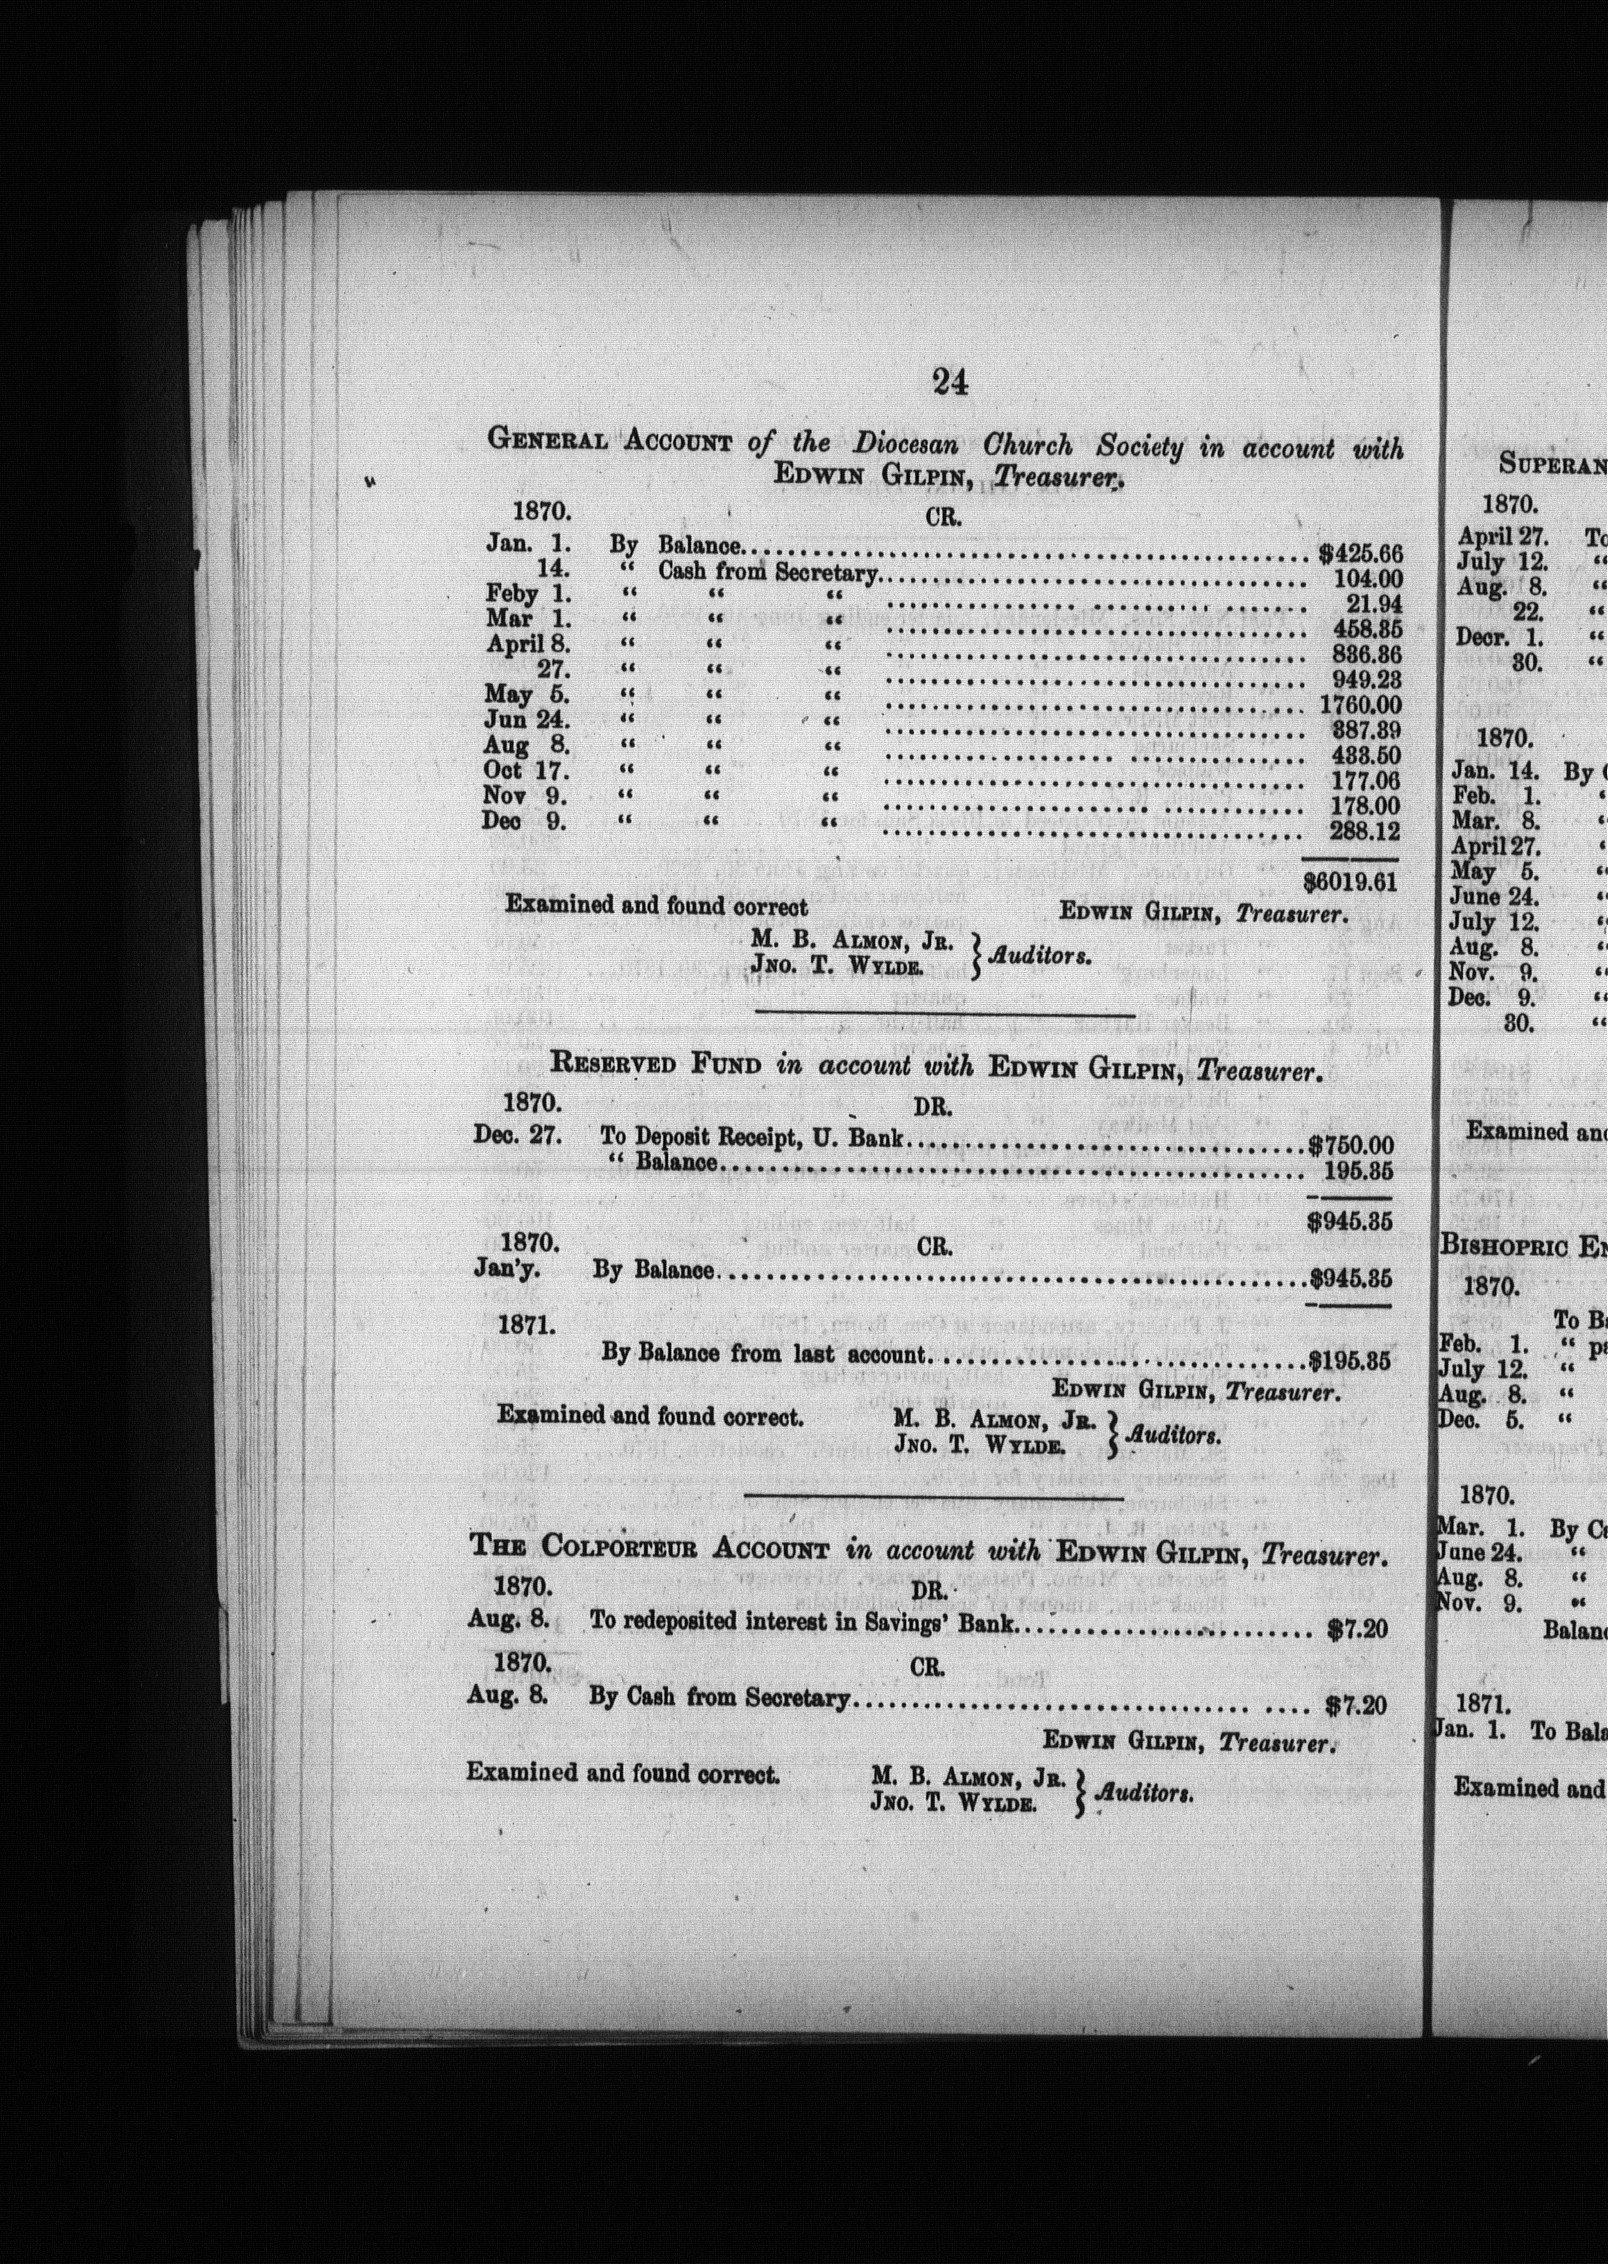 24
GENERAL ACCOUNT of the Diocesan Church Society in account with
EDWIN GILPIN, Treasurer.
1870. CR.
Jan. 1. By Balance........................................ $425.66
14. “ Cash from Secretary.............................. 104.00
Feby 1. “ “ “ .............................. 21.94
Mar 1. “ “ “ .............................. 458.35
April 8. “ “ “ .............................. 836.36
27. “ “ “ .............................. 949.23
May 5. “ “ “ .............................. 1760.00
Jun 24. “ “ “ .............................. 387.39
Aug 8. “ “ “ .............................. 433.50
Oct 17. “ “ “ .............................. 177.06
Nov 9. “ “ “ .............................. 178.00
Dec 9. “ “ “ .............................. 288.12
$6019.61
Examined and found correct EDWIN GILPIN, Treasurer.
M. B. ALMON, JR. } Auditors.
JNO. T. WYLDE.
RESERVED FUND in account with EDWIN GILPIN, Treasurer.
1870. DR.
Dec. 27. To Deposit Receipt, U. Bank..............................$750.00
“ Balance........................................ 195.35
$945.35
1870. CR.
Jan'y. By Balance........................................$945.35
1871.
By Balance from last account..............................$195.35
EDWIN GILPIN, Treasurer.
Examined and found correct. M. B. ALMON, JR. } Auditors.
JNO. T. WYLDE.
THE COLPORTEUR ACCOUNT in account with EDWIN GILPIN, Treasurer.
1870. DR.
Aug. 8. To redeposited interest in Savings' Bank........................ $7.20
1870. CR.
Aug. 8. By Cash from Secretary.............................. .... $7.20
EDWIN GILPIN, Treasurer.
Examined and found correct. M. B. ALMON, JR. } Auditors.
JNO. T. WYLDE.
SUPERAN
1870.
April 27. To
July 12. “
Aug. 8. “
22. “
Decr. 1. “
30. “
1870.
Jan. 14. By
Feb. 1. “
Mar. 8. “
April 27. “
May 5. “
June 24. “
July 12. “
Aug. 8. “
Nov. 9. “
Dec. 9. “
30. “
Examined and
BISHOPRIC EN
1870.
To Ba
Feb. 1. “ pa
July 12. “
Aug. 8. “
Dec. 5. “
1870.
Mar. 1. By Ca
June 24. “
Aug. 8. “
Nov. 9. “
Balanc
1871.
Jan. 1. To Bala
Examined and